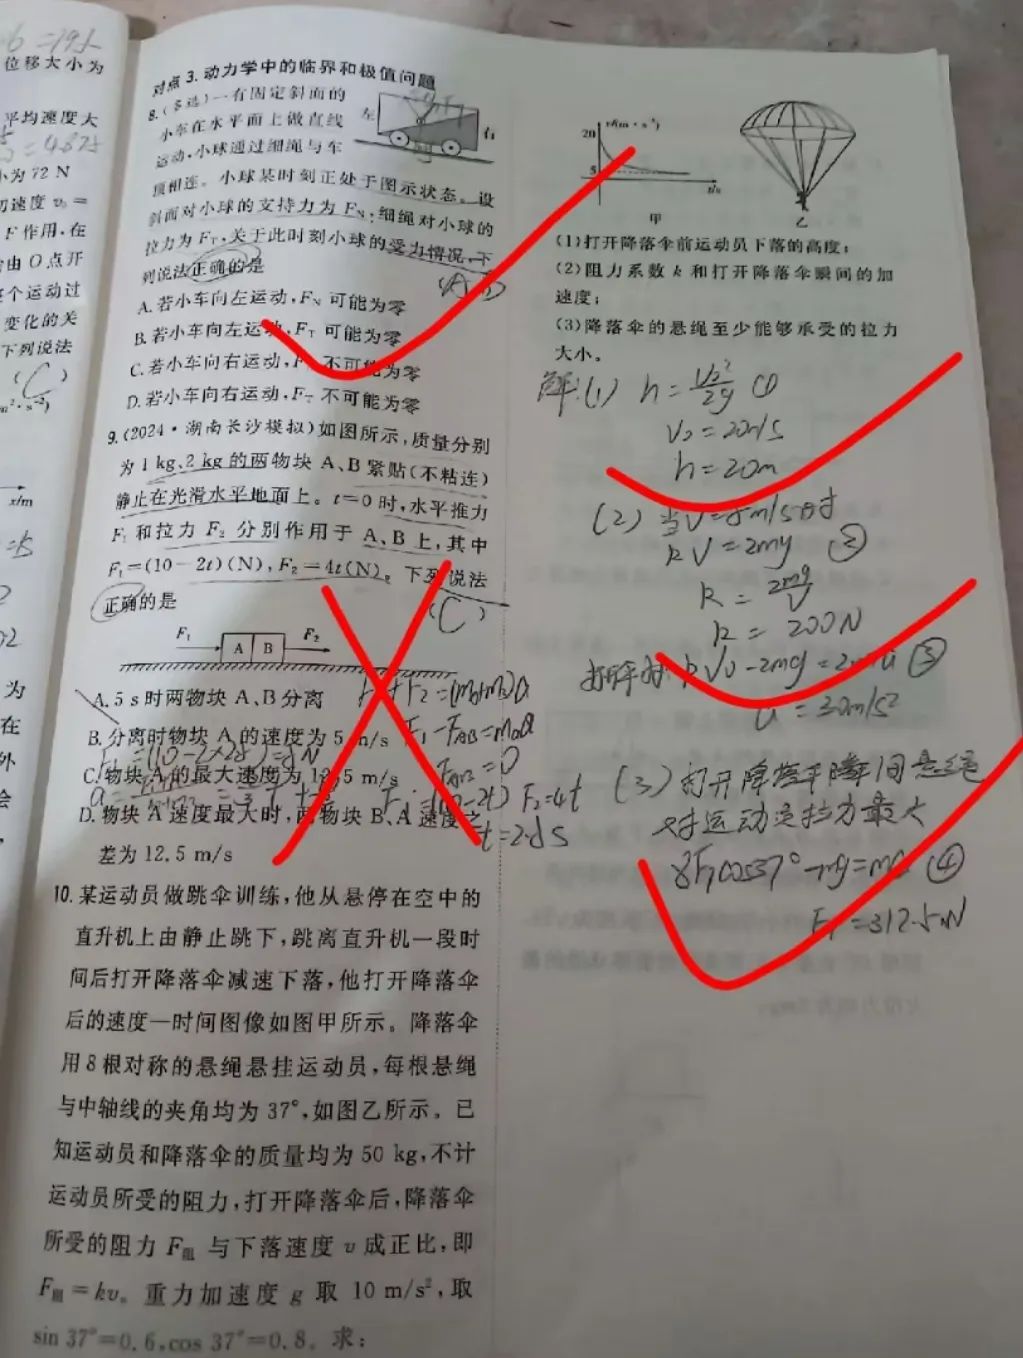 6=19.5
位移大小为
平均速度大
=4.875
小为 72 N
初速度 v₀=
F 作用,在
由 O 点开
某个运动过
变化的关
下列说法
(C)
x/m
为
在
外
会
对点 3. 动力学中的临界和极值问题
8.(多选)一有固定斜面的
小车在水平面上做直线
运动,小球通过细绳与车
顶相连。小球某时刻正处于图示状态。设
斜面对小球的支持力为 FN,细绳对小球的
拉力为 FT,关于此时刻小球的受力情况,下
列说法正确的是
左
右
A. 若小车向左运动,FN 可能为零
B. 若小车向左运动,FT 可能为零
C. 若小车向右运动,F 不可能为零
D. 若小车向右运动,FT 不可能为零
9.(2024·湖南长沙模拟)如图所示,质量分别
为 1 kg、2 kg 的两物块 A、B 紧贴(不粘连)
静止在光滑水平地面上。t=0 时,水平推力
F₁ 和拉力 F₂ 分别作用于 A、B 上,其中
F₁=(10-2t)(N),F₂=4t(N)。下列说法
正确的是
(C)
F₁ A B F₂
A. 5 s 时两物块 A、B 分离
F₁+F₂=(m₁+m₂)a
B. 分离时物块 A 的速度为 5 m/s
F₁-FAB=mAa
FAB=0
C. 物块 A 的最大速度为 12.5 m/s
F₁=(10-2t) F₂=4t
D. 物块 A 速度最大时,两物块 B、A 速度之
差为 12.5 m/s
t=2.5s
10. 某运动员做跳伞训练,他从悬停在空中的
直升机上由静止跳下,跳离直升机一段时
间后打开降落伞减速下落,他打开降落伞
后的速度—时间图像如图甲所示。降落伞
用 8 根对称的悬绳悬挂运动员,每根悬绳
与中轴线的夹角均为 37°,如图乙所示。已
知运动员和降落伞的质量均为 50 kg,不计
运动员所受的阻力,打开降落伞后,降落伞
所受的阻力 F阻 与下落速度 v 成正比,即
F阻=kv。重力加速度 g 取 10 m/s²,取
sin 37°=0.6,cos 37°=0.8。求:
v/(m·s⁻¹)
20
5
t/s
甲
乙
(1)打开降落伞前运动员下落的高度;
(2)阻力系数 k 和打开降落伞瞬间的加
速度;
(3)降落伞的悬绳至少能够承受的拉力
大小。
解:(1) h=V₀²/2g ①
V₀=20m/s
h=20m
(2) 当V=5m/s时
kV=2mg ②
k=2mg/V
k=200N
kV₀-2mg=2ma ③
a=30m/s²
(3) 打开降落伞瞬间悬绳
对运动员拉力最大
8FTcos37°-mg=ma ④
FT=312.5N